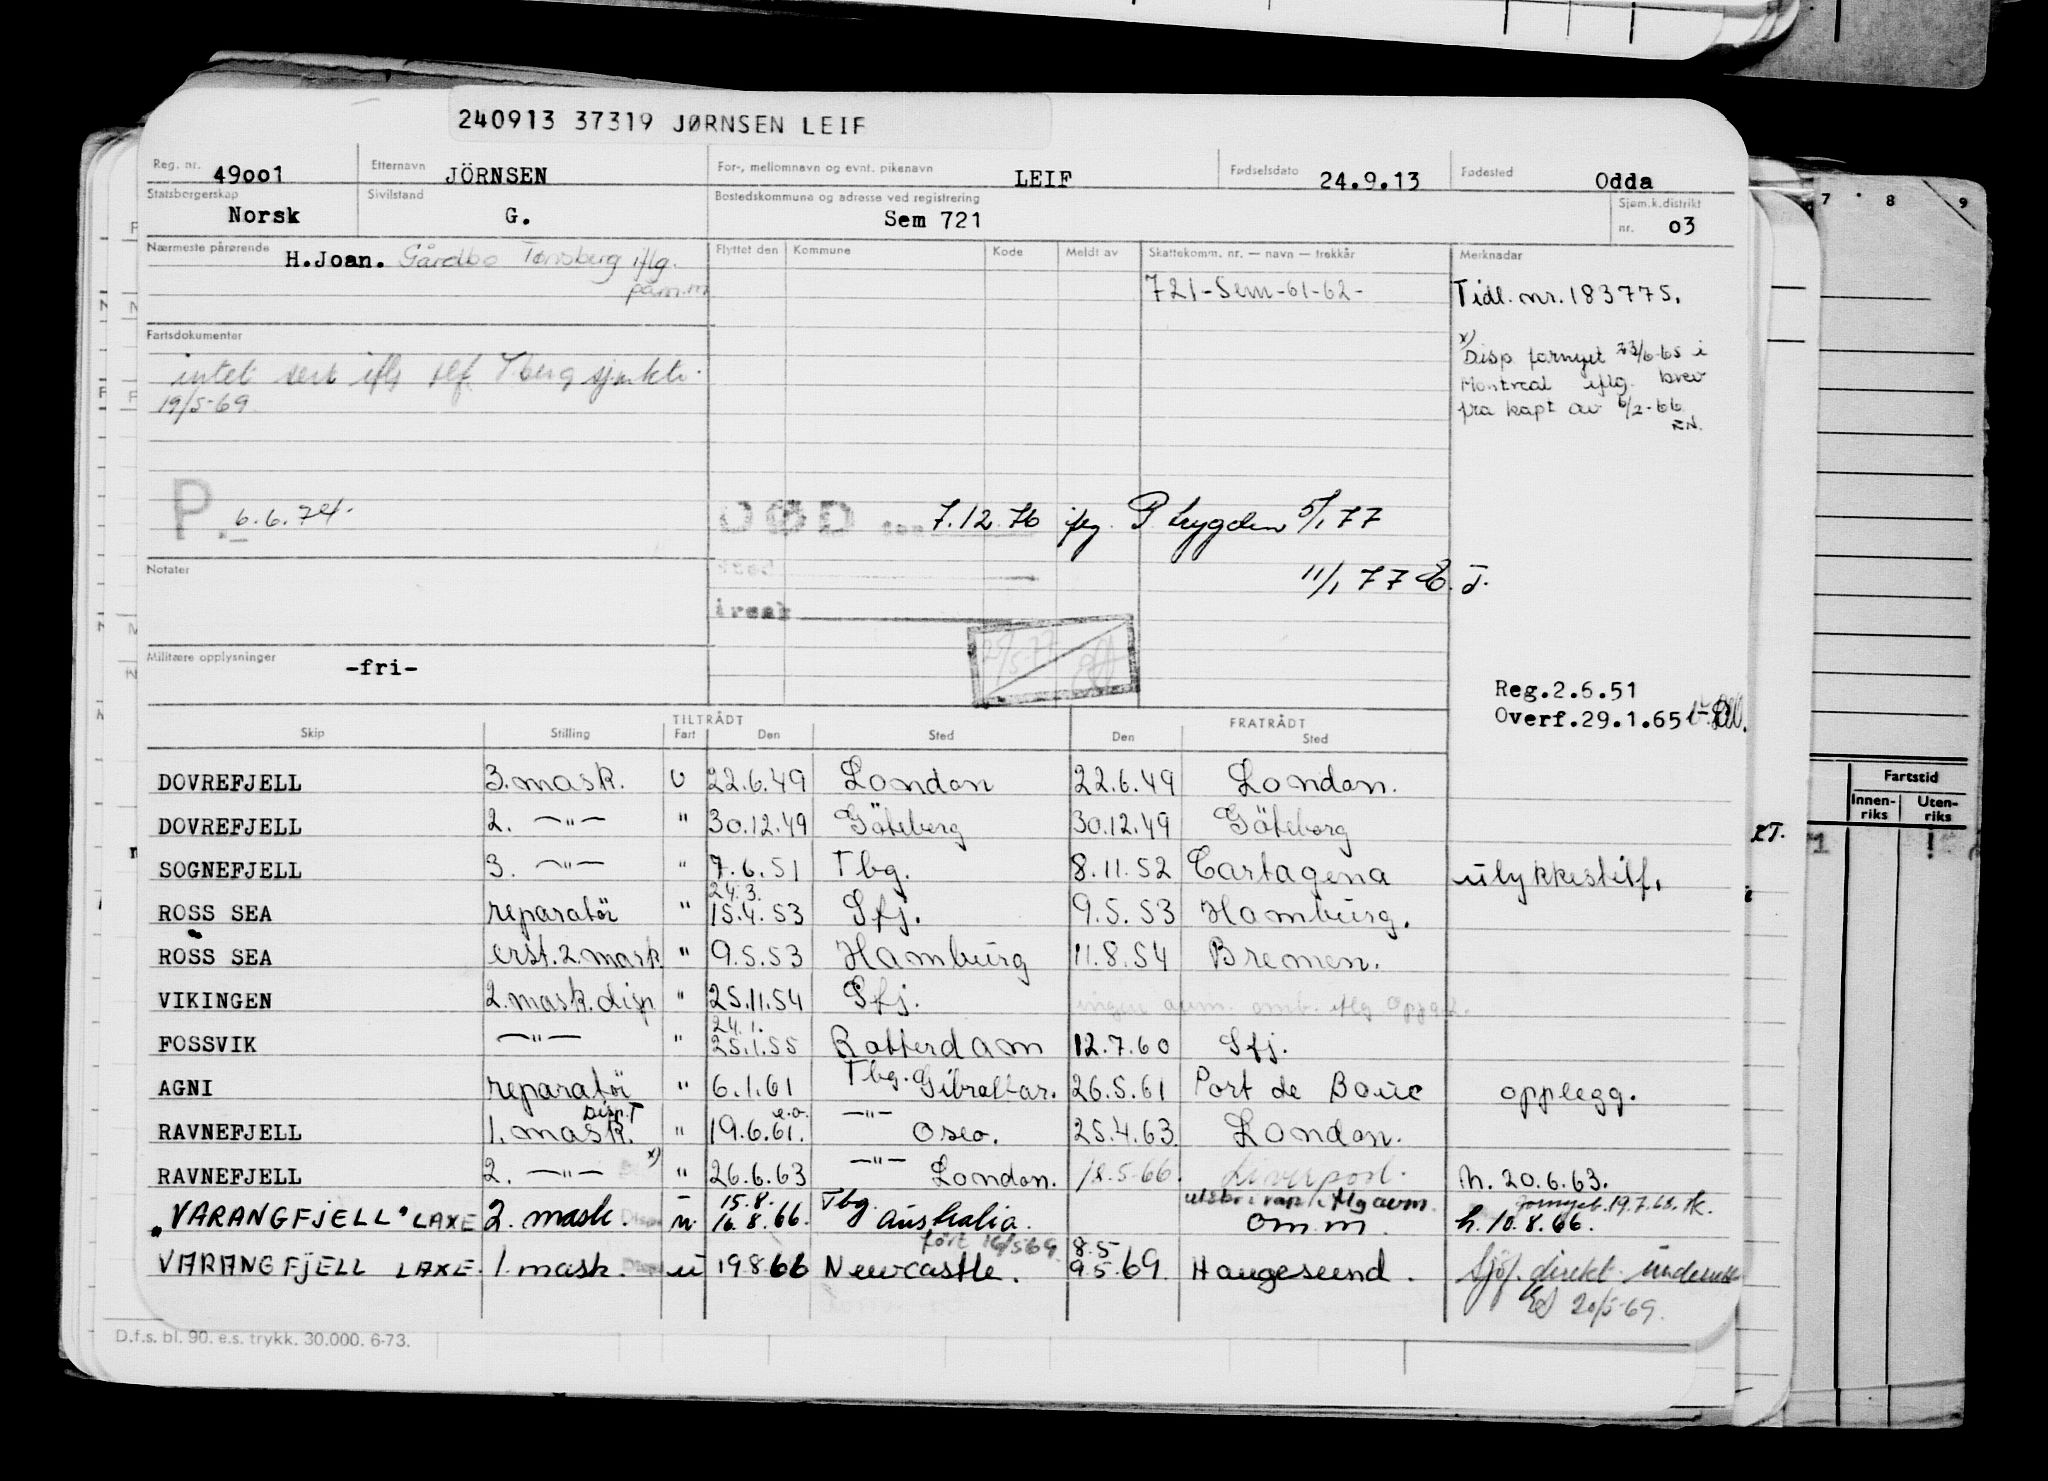 240913 37319 JØRNSEN LEIF
Reg. nr. 49oo1 Etternavn JÖRNSEN For-, mellomnavn og evnt. pikenavn LEIF Fødselsdato 24.9.13 Fødested Odda
Statsborgerskap Norsk Sivilstand G. Bostedskommune og adresse ved registrering Sem 721 Sjøm.k.distrikt nr. o3
Nærmeste pårørende H.Joan. Gårdbo Tønsberg iflg. Flyttet den Kommune Kode Meldt av Skattekomm. nr. — navn — trekkår Merknader
påm.m
721-Sem-61-62- Tidl. nr. 183775.
Fartsdokumenter
x) Disp. fornyet 23/6-65 i
intet sert iflg tlf. Tberg sjøktr. Montreal iflg. brev
19/5-69. fra kapt av 6/2-66
RN.
P. 6.6.74. DØD den 7.12.76 iflg. P. trygden 5/1 77
Notater sted 11/1 77 E.J.
årsak
Militære opplysninger -fri-
Reg.2.6.51
Overf.29.1.65
TILTRÅDT FRATRÅDT
Skip Stilling Fart Den Sted Den Sted
DOVREFJELL 3.mask. U 22.6.49 London 22.6.49 London.
DOVREFJELL 2. —"— " 30.12.49 Göteborg 30.12.49 Göteborg
SOGNEFJELL 3. —"— " 7.6.51 Tbg. 8.11.52 Cartagena ulykkestilf.
24.3.
ROSS SEA reparatör " 15.4.53 Sfj. 9.5.53 Hamburg.
ROSS SEA erst.2.mask. " 9.5.53 Hamburg 11.8.54 Bremen.
VIKINGEN 2.mask.disp " 25.11.54 Sfj. ingen avm. omb. iflg oppg.
24.1.
FOSSVIK —"— " 25.1.55 Rotterdam 12.7.60 Sfj.
AGNI reparatör " 6.1.61 Tbg. Gibraltar. 26.5.61 Port de Bouc opplegg.
Disp.T e.o.
RAVNEFJELL 1. mask. " 19.6.61. —"— Oslo. 25.4.63. London.
RAVNEFJELL 2. —"— x) " 26.6.63 —"— London. 18.5-66. Liverpool. h. 20.6.63.
15.8. fornyet. 19.7.68.
"VARANGFJELL" LAXE 2. mask. Disp u. 16.8.66. Tbg. Australia. om.m. h. 10.8.66.
ført 16/5 69 8.5
VARANGFJELL LAXE. 1. mask. Disp u 19.8.66 Newcastle. 9.5.69. Haugesund. Sjöf. direkt underrett
20/5-69.
D.f.s. bl. 90. e.s. trykk. 30.000. 6-73.
7 8 9
Fartstid
Innen-riks Uten-riks